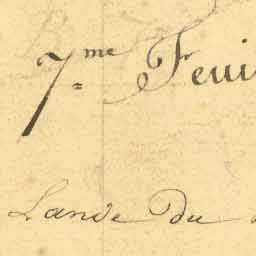 7.me Feui
Lande du